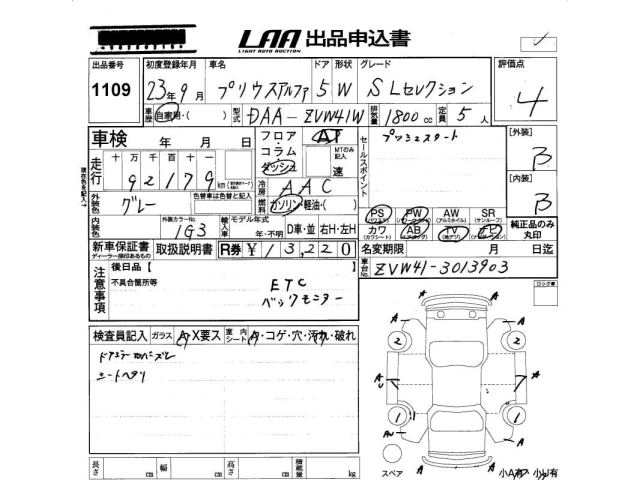 LAA 出品申込書
LIGHT AUTO AUCTION
出品番号 初度登録年月 車名 ドア 形状 グレード 評価点
1109 23年9月 プリウスアルファ 5 W Sセレクション 4
車歴 自家用・( ) 型式 DAA-ZVW41W 排気量 1800cc 定員 5人
車検 年 月 日 フロア・コラム・ダッシュ AT MTのみ記入 速 セールスポイント プッシュスタート [外装] B
走行 十万千百十一 92179 km
冷房 AAC [内装] B
外装色 グレー 色替車は色替と記入 燃料 ガソリン・軽油・( )
PS (パワステ) PW (パワーウィンド) AW (アルミホイル) SR (サンルーフ) 純正品のみ丸印
カワ (カワシート) AB (エアバッグ) TV
内装色 外装カラーNo. 1G3 輸入車 モデル年式 年・不明 D車・並 右H・左H
新車保証書 ディーラー捺印あるもの 取扱説明書 R券 ¥13,220 名変期限 月 日迄
車台No. ZVW41-3013903
注意事項 後日品【 】
不具合箇所等 ETC
バックモニター
ロック車
検査員記入 ガラス A・X要ス 室内シート A・コゲ・穴・汚れ・破れ
シートヘタリ
A A
2 2
A A
1 1
A A
スペア 小A有 小U有
長さ cm 幅 cm 高さ cm 積載量 kg